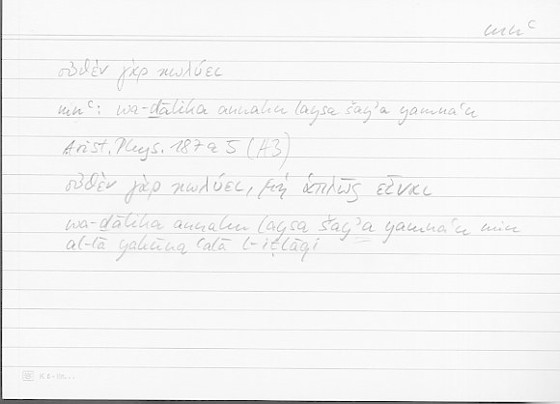 mnᶜ
οὐθὲν γὰρ κωλύει
mnᶜ: wa-ḏālika annahu laysa šayʾa yamnaʿu
Arist. Phys. 187 a 5 (A3)
οὐθὲν γὰρ κωλύει, μὴ ἁπλῶς εἶναι
wa-ḏālika annahu laysa šayʾa yamnaʿu min
al-lā yakūna ʿalā l-iṭlāqi